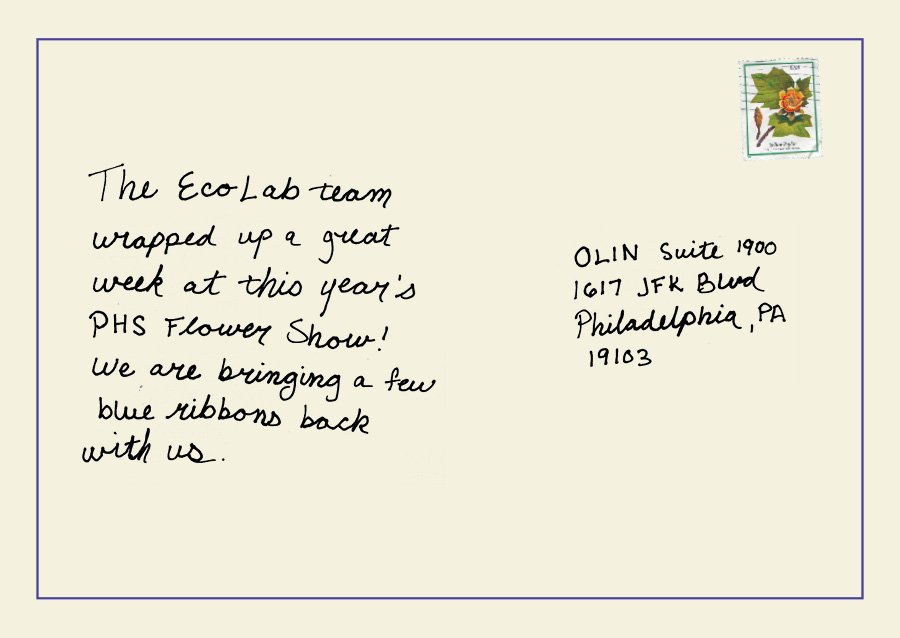 The EcoLab team
wrapped up a great
week at this year's
PHS Flower Show!
We are bringing a few
blue ribbons back
with us.
OLIN Suite 1900
1617 JFK Blvd
Philadelphia, PA
19103